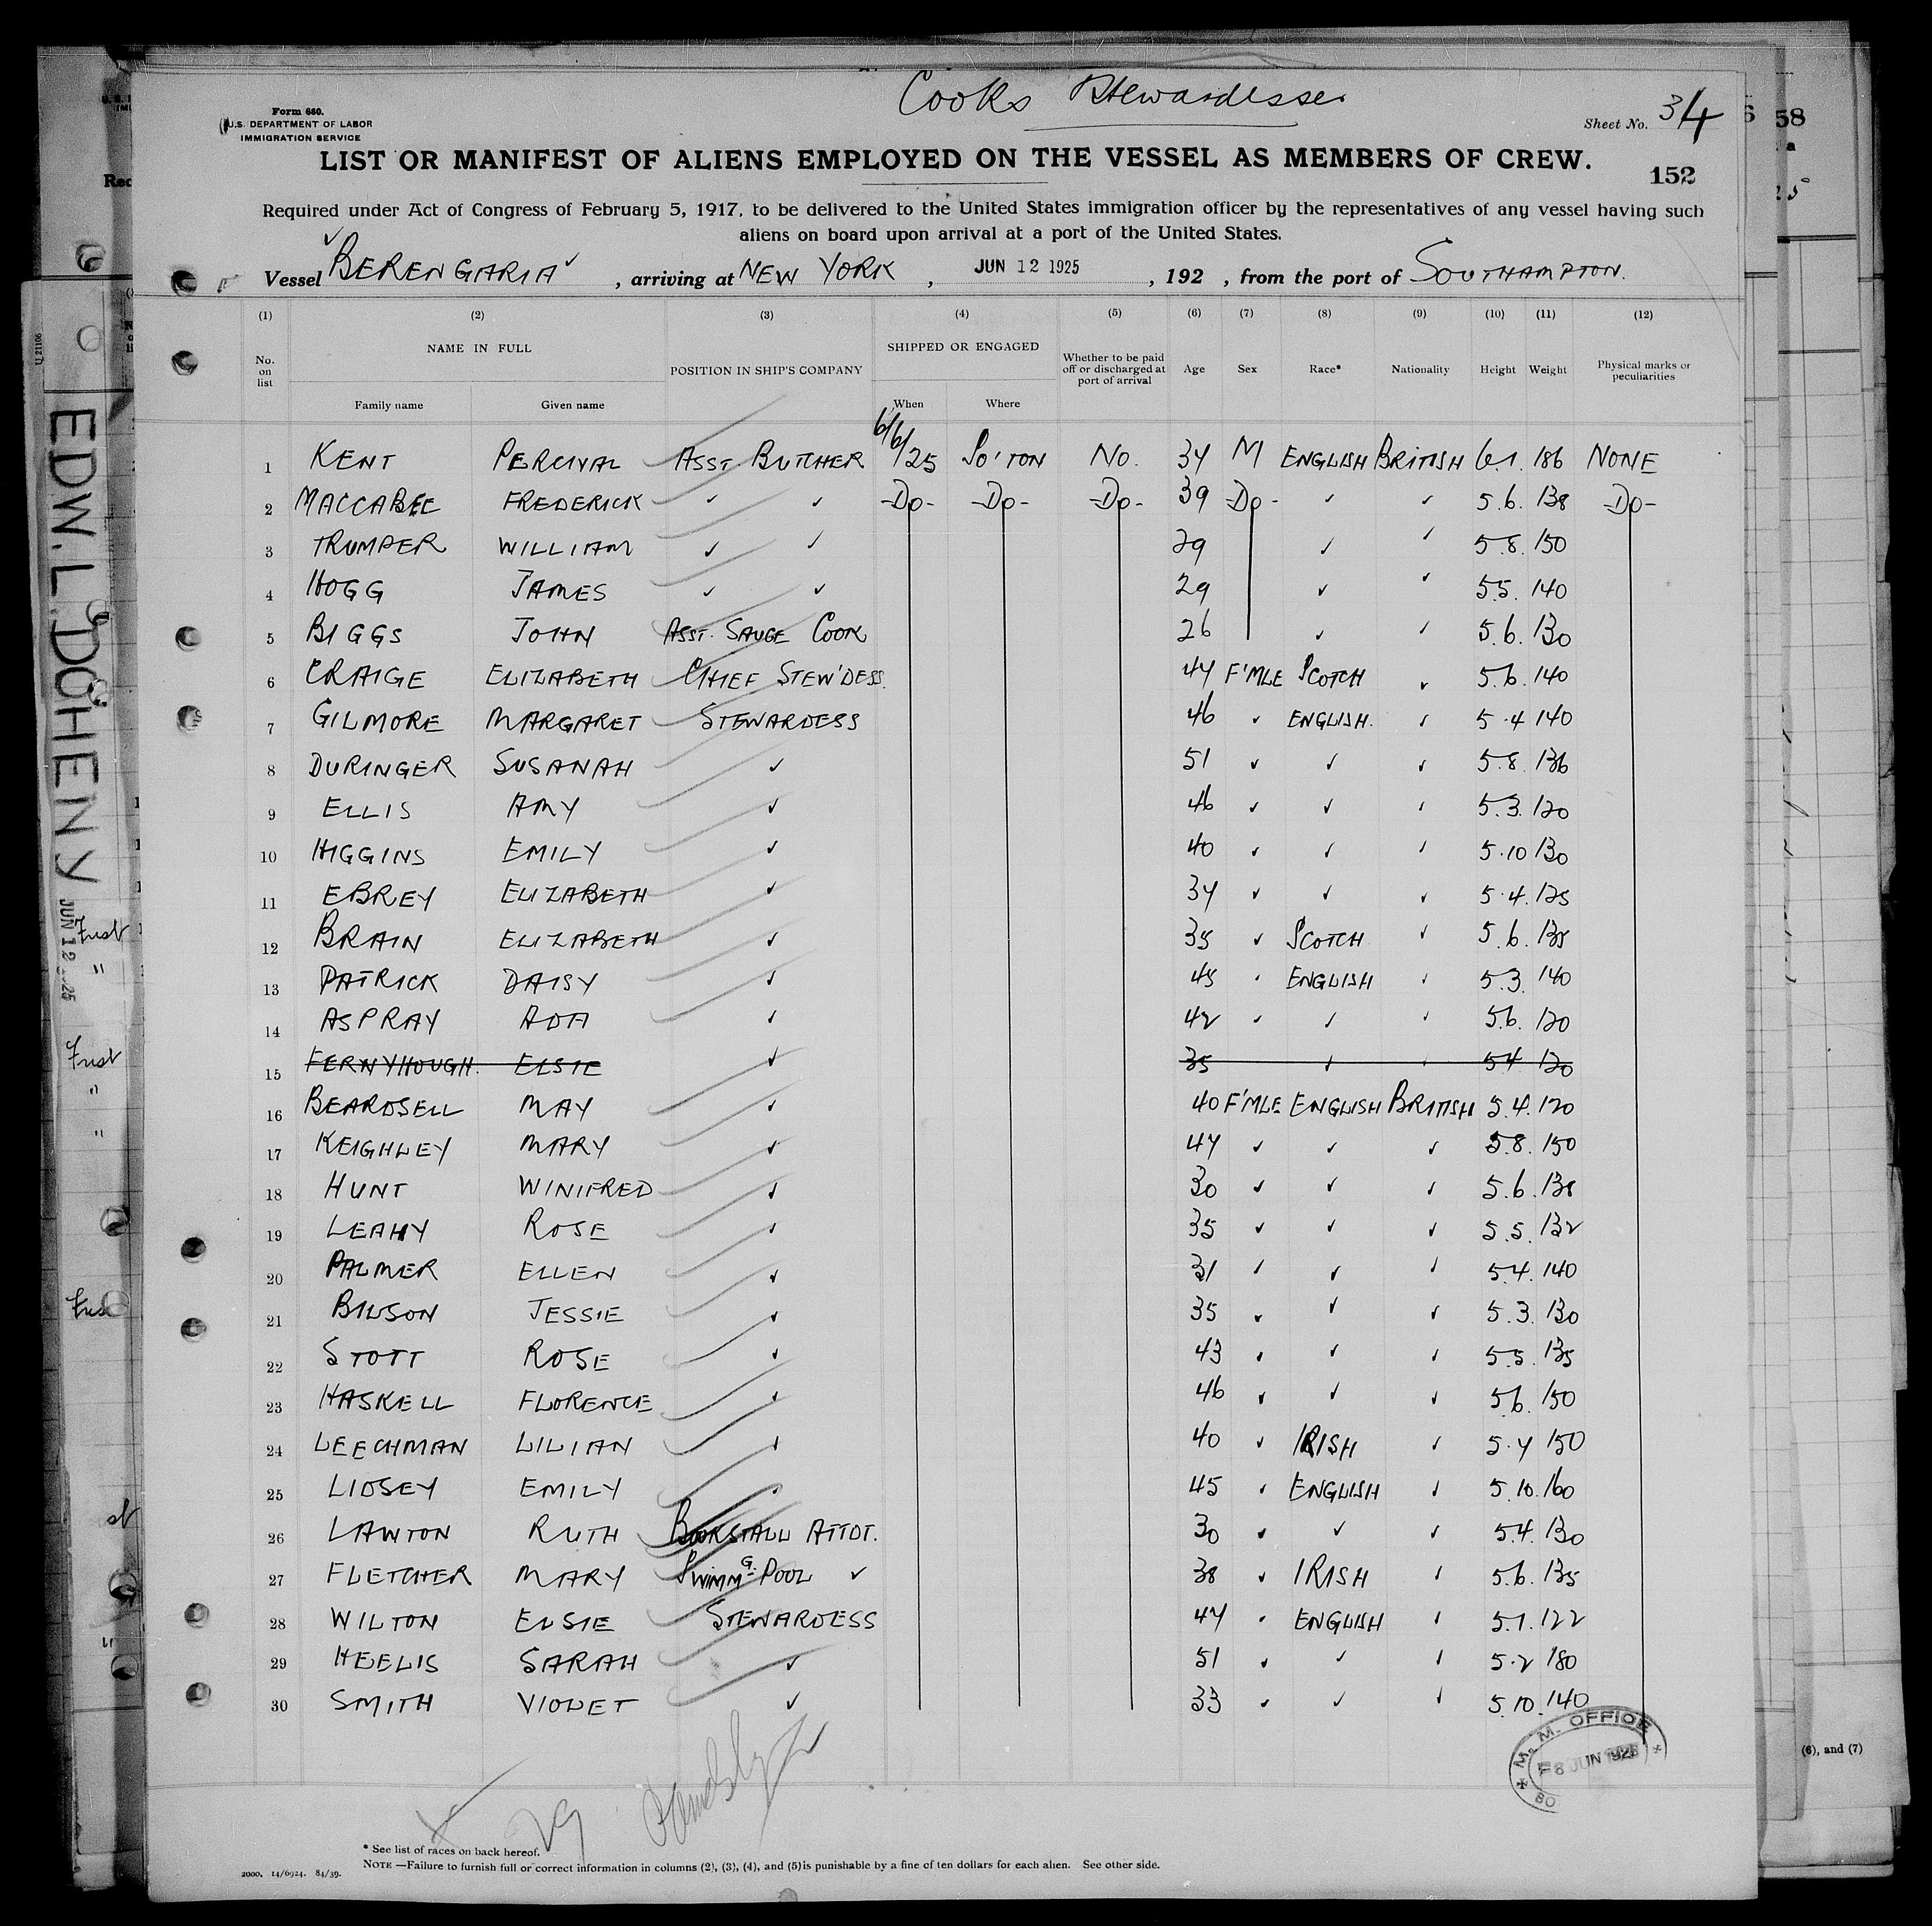 Cooks Stewardesses
Form 680.
U.S. DEPARTMENT OF LABOR
IMMIGRATION SERVICE
Sheet No. 34
LIST OR MANIFEST OF ALIENS EMPLOYED ON THE VESSEL AS MEMBERS OF CREW.
152
Required under Act of Congress of February 5, 1917, to be delivered to the United States immigration officer by the representatives of any vessel having such
aliens on board upon arrival at a port of the United States.
Vessel BERENGARIA, arriving at NEW YORK, JUN 12 1925, 192 , from the port of SOUTHAMPTON.
(1) (2) (3) (4) (5) (6) (7) (8) (9) (10) (11) (12)
No. on list NAME IN FULL POSITION IN SHIP'S COMPANY SHIPPED OR ENGAGED Whether to be paid off or discharged at port of arrival Age Sex Race* Nationality Height Weight Physical marks or peculiarities
Family name Given name When Where
1 KENT PERCIVAL ASST. BUTCHER 6/6/25 SO'TON NO. 34 M ENGLISH BRITISH 6.1. 186 NONE
2 MACCABEE FREDERICK ✓ ✓ -DO- -DO- -DO- 39 -DO- ✓ ✓ 5.6. 138 -DO-
3 TRUMPER WILLIAM ✓ ✓ 29 ✓ ✓ 5.8. 150
4 HOGG JAMES ✓ ✓ 29 ✓ ✓ 5.5. 140
5 BIGGS JOHN ASST. SAUGE COOK 26 ✓ ✓ 5.6. 130
6 CRAIGE ELIZABETH CHIEF STEW'DESS. 44 F'MLE SCOTCH ✓ 5.6. 140
7 GILMORE MARGARET STEWARDESS 46 ✓ ENGLISH. ✓ 5.4 140
8 DURINGER SUSANAH ✓ 51 ✓ ✓ ✓ 5.8. 136
9 ELLIS AMY ✓ 46 ✓ ✓ ✓ 5.3. 120
10 HIGGINS EMILY ✓ 40 ✓ ✓ ✓ 5.10 130
11 EBREY ELIZABETH ✓ 34 ✓ ✓ ✓ 5.4. 125
12 BRAIN ELIZABETH ✓ 35 ✓ SCOTCH ✓ 5.6. 135
13 PATRICK DAISY ✓ 45 ✓ ENGLISH ✓ 5.3. 140
14 ASPRAY ADA ✓ 42 ✓ ✓ ✓ 5.6. 120
15 FERNYHOUGH. ELSIE ✓ 35 ✓ ✓ 5.4 120
16 BEARDSELL MAY ✓ 40 F'MLE ENGLISH BRITISH 5.4. 120
17 KEIGHLEY MARY ✓ 44 ✓ ✓ ✓ 5.8. 150
18 HUNT WINIFRED ✓ 30 ✓ ✓ ✓ 5.6. 138
19 LEAHY ROSE ✓ 35 ✓ ✓ ✓ 5.5. 132
20 PALMER ELLEN ✓ 31 ✓ ✓ ✓ 5.4. 140
21 BILSON JESSIE ✓ 35 ✓ ✓ ✓ 5.3. 130
22 STOTT ROSE ✓ 43 ✓ ✓ ✓ 5.5. 135
23 HASKELL FLORENCE ✓ 46 ✓ ✓ ✓ 5.6. 150
24 LEECHMAN LILIAN ✓ 40 ✓ IRISH ✓ 5.4 150
25 LIDSEY EMILY ✓ 45 ✓ ENGLISH ✓ 5.10. 160
26 LAWTON RUTH BOOKSTALL ATTDT. 30 ✓ ✓ ✓ 5.4. 130
27 FLETCHER MARY SWIMMG. POOL ✓ 38 ✓ IRISH ✓ 5.6. 135
28 WILTON ELSIE STEWARDESS 44 ✓ ENGLISH ✓ 5.1. 122
29 HEELIS SARAH ✓ 51 ✓ ✓ ✓ 5.2 180
30 SMITH VIOLET ✓ 33 ✓ ✓ ✓ 5.10. 140
M. M. OFFICE
29
* See list of races on back hereof.
NOTE —Failure to furnish full or correct information in columns (2), (3), (4), and (5) is punishable by a fine of ten dollars for each alien. See other side.
2000. 14/6924. 84/39.
EDW. L. DOHENY
JUN 12 1925
U 21106
58
(6), and (7)